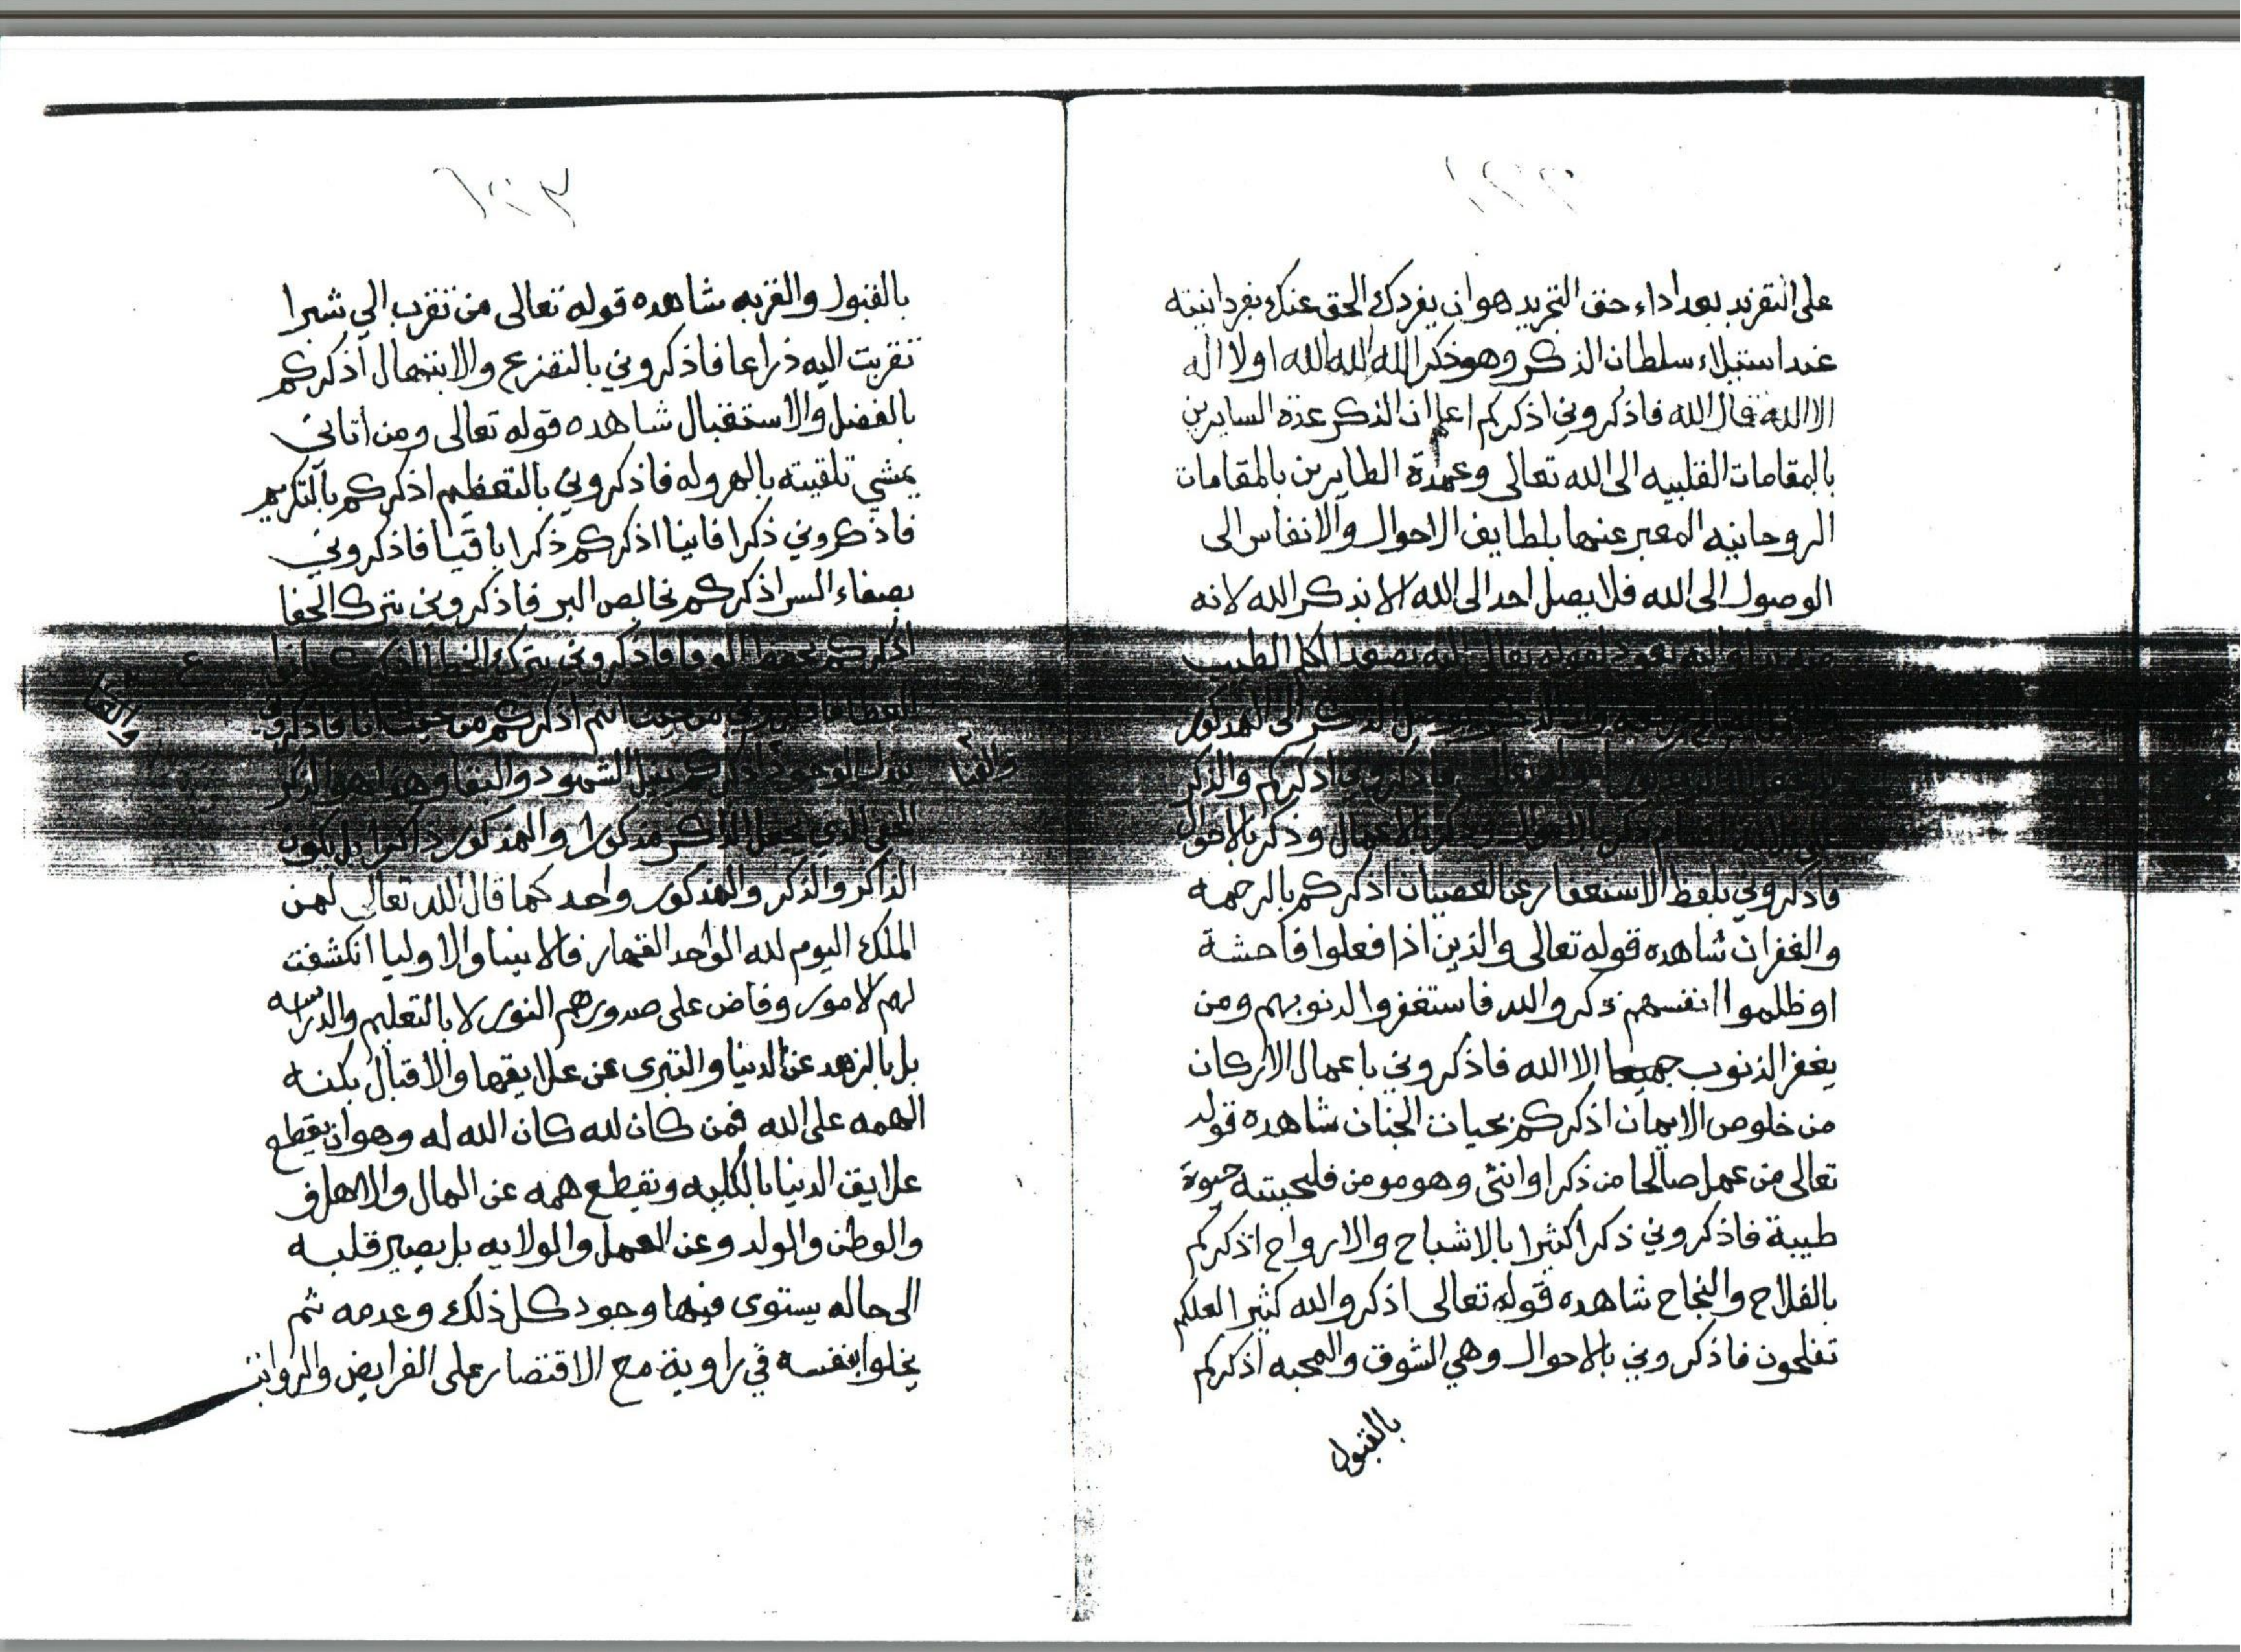 على التفريد بعد اداء حق التجريد هو ان يفردك الحق عنك بفردانيته
عند استيلاء سلطان الذكر وهو ذكر الله الله الله او لا اله
الا الله قال الله فاذكروني اذكركم اعلم ان الذكر عدة السايرين
بالمقامات القلبيه الى الله تعالى وعمدة الطايرين بالمقامات
الروحانيه المعبر عنها بلطايف الاحوال والانفاس الى
الوصول الى الله فلا يصل احد الى الله الا بذكر الله لانه
منه بدا واليه يعود لقوله تعالى اليه يصعد الكلم الطيب
والعمل الصالح يرفعه الذكر الى المذكور
تعالى فاذكروني اذكركم والذكر
على ذكر بالاقوال وذكر بالاعمال وذكر بالاحوال
فاذكروني بلفظ الاستغفار عن العصيان اذكركم بالرحمه
والغفران شاهده قوله تعالى والذين اذا فعلوا فاحشة
او ظلموا انفسهم ذكروا الله فاستغفروا لذنوبهم ومن
يغفر الذنوب جميعا الا الله فاذكروني باعمال الاركان
من خلوص الايمان اذكركم بحيات الجنان شاهده قوله
تعالى من عمل صالحا من ذكر او انثى وهو مومن فليحيينه حيوة
طيبة فاذكروني ذكرا كثيرا بالاشباح والارواح اذكركم
بالفلاح والنجاح شاهده قوله تعالى اذكروا الله كثيرا لعلكم
تفلحون فاذكروني بالاحوال وهي الشوق والمحبه اذكركم
بالقبول
بالقبول والقربه شاهده قوله تعالى من تقرب الي شبرا
تقربت اليه ذراعا فاذكروني بالتضرع والابتهال اذكركم
بالفضل والاستقبال شاهده قوله تعالى ومن اتاني
يمشي تلقيته بالهروله فاذكروني بالتعظيم اذكركم بالتكريم
فاذكروني ذكرا فانيا اذكركم ذكرا باقيا فاذكروني
بصفاء السر اذكركم بخالص البر فاذكروني بترك الجفا
اذكركم بحفظ الوفا فاذكروني بترك الخطا اذكركم
العطا فاذكروني من حيث انتم اذكركم من حيث انا فاذكروني
الوجود اذكركم بنيل الشهود والبقا وهذا هو الذكر
والفنا
الذي يجعل الذاكر مذكورا والمذكور ذاكرا بل يكون
الذاكر والذكر والمذكور واحد كما قال الله تعالى لمن
الملك اليوم لله الواحد القهار فالانبيا والاوليا انكشفت
لهم الامور وفاض على صدورهم النور لا بالتعليم والدراسه
بل بالزهد عن الدنيا والتبرى عن علايقها والاقبال بكنه
الهمه على الله فمن كان لله كان الله له وهو ان يقطع
علايق الدنيا بالكليه ويقطع همه عن المال والاهل
والوطن والولد وعن العمل والولايه بل يصير قلبه
الى حاله يستوى فيها وجود كل ذلك وعدمه ثم
يخلوا بنفسه في زاوية مع الاقتصار على الفرايض والرواتب